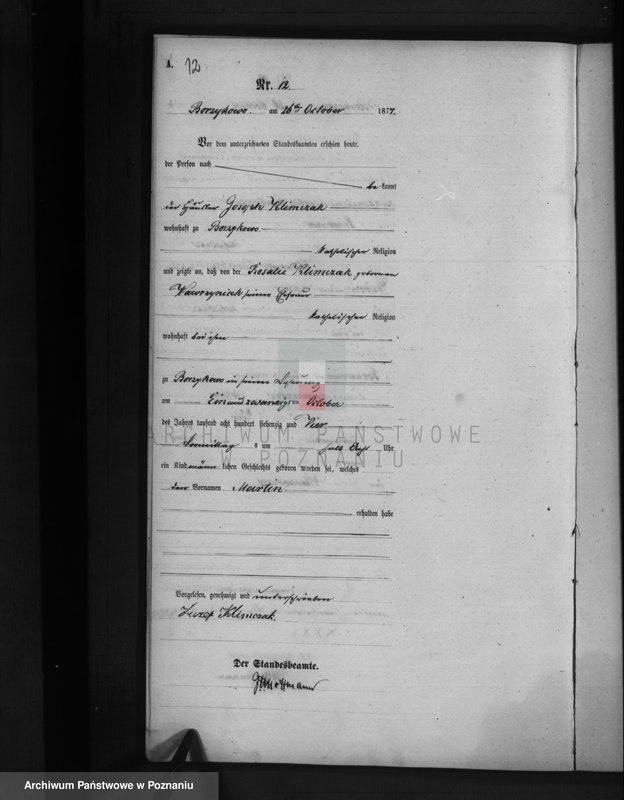 A. 12
Nr. 12.
Borzykowo am 26ten October 1874.
Vor dem unterzeichneten Standesbeamten erschien heute,
der Person nach
bekannt
der Häusler Joseph Klimczak
wohnhaft zu Borzykowo.
katholischer Religion
und zeigte an, daß von der Rosalie Klimczak geborenen
Wawrzyniak seiner Ehefrau
katholischer Religion
wohnhaft bei ihm
zu Borzykowo in seiner Wohnung
am Einundzwanzigsten October
des Jahres tausend acht hundert siebenzig und Vier
Vormittags um halb Uhr
ein Kind männlichen Geschlechts geboren worden sei, welches
den Vornamen Martin.
erhalten habe
ARCHIWUM PAŃSTWOWE
W POZNANIU
Vorgelesen, genehmigt und unterschrieben
Jozef Klimczak.
Der Standesbeamte.
Archiwum Państwowe w Poznaniu